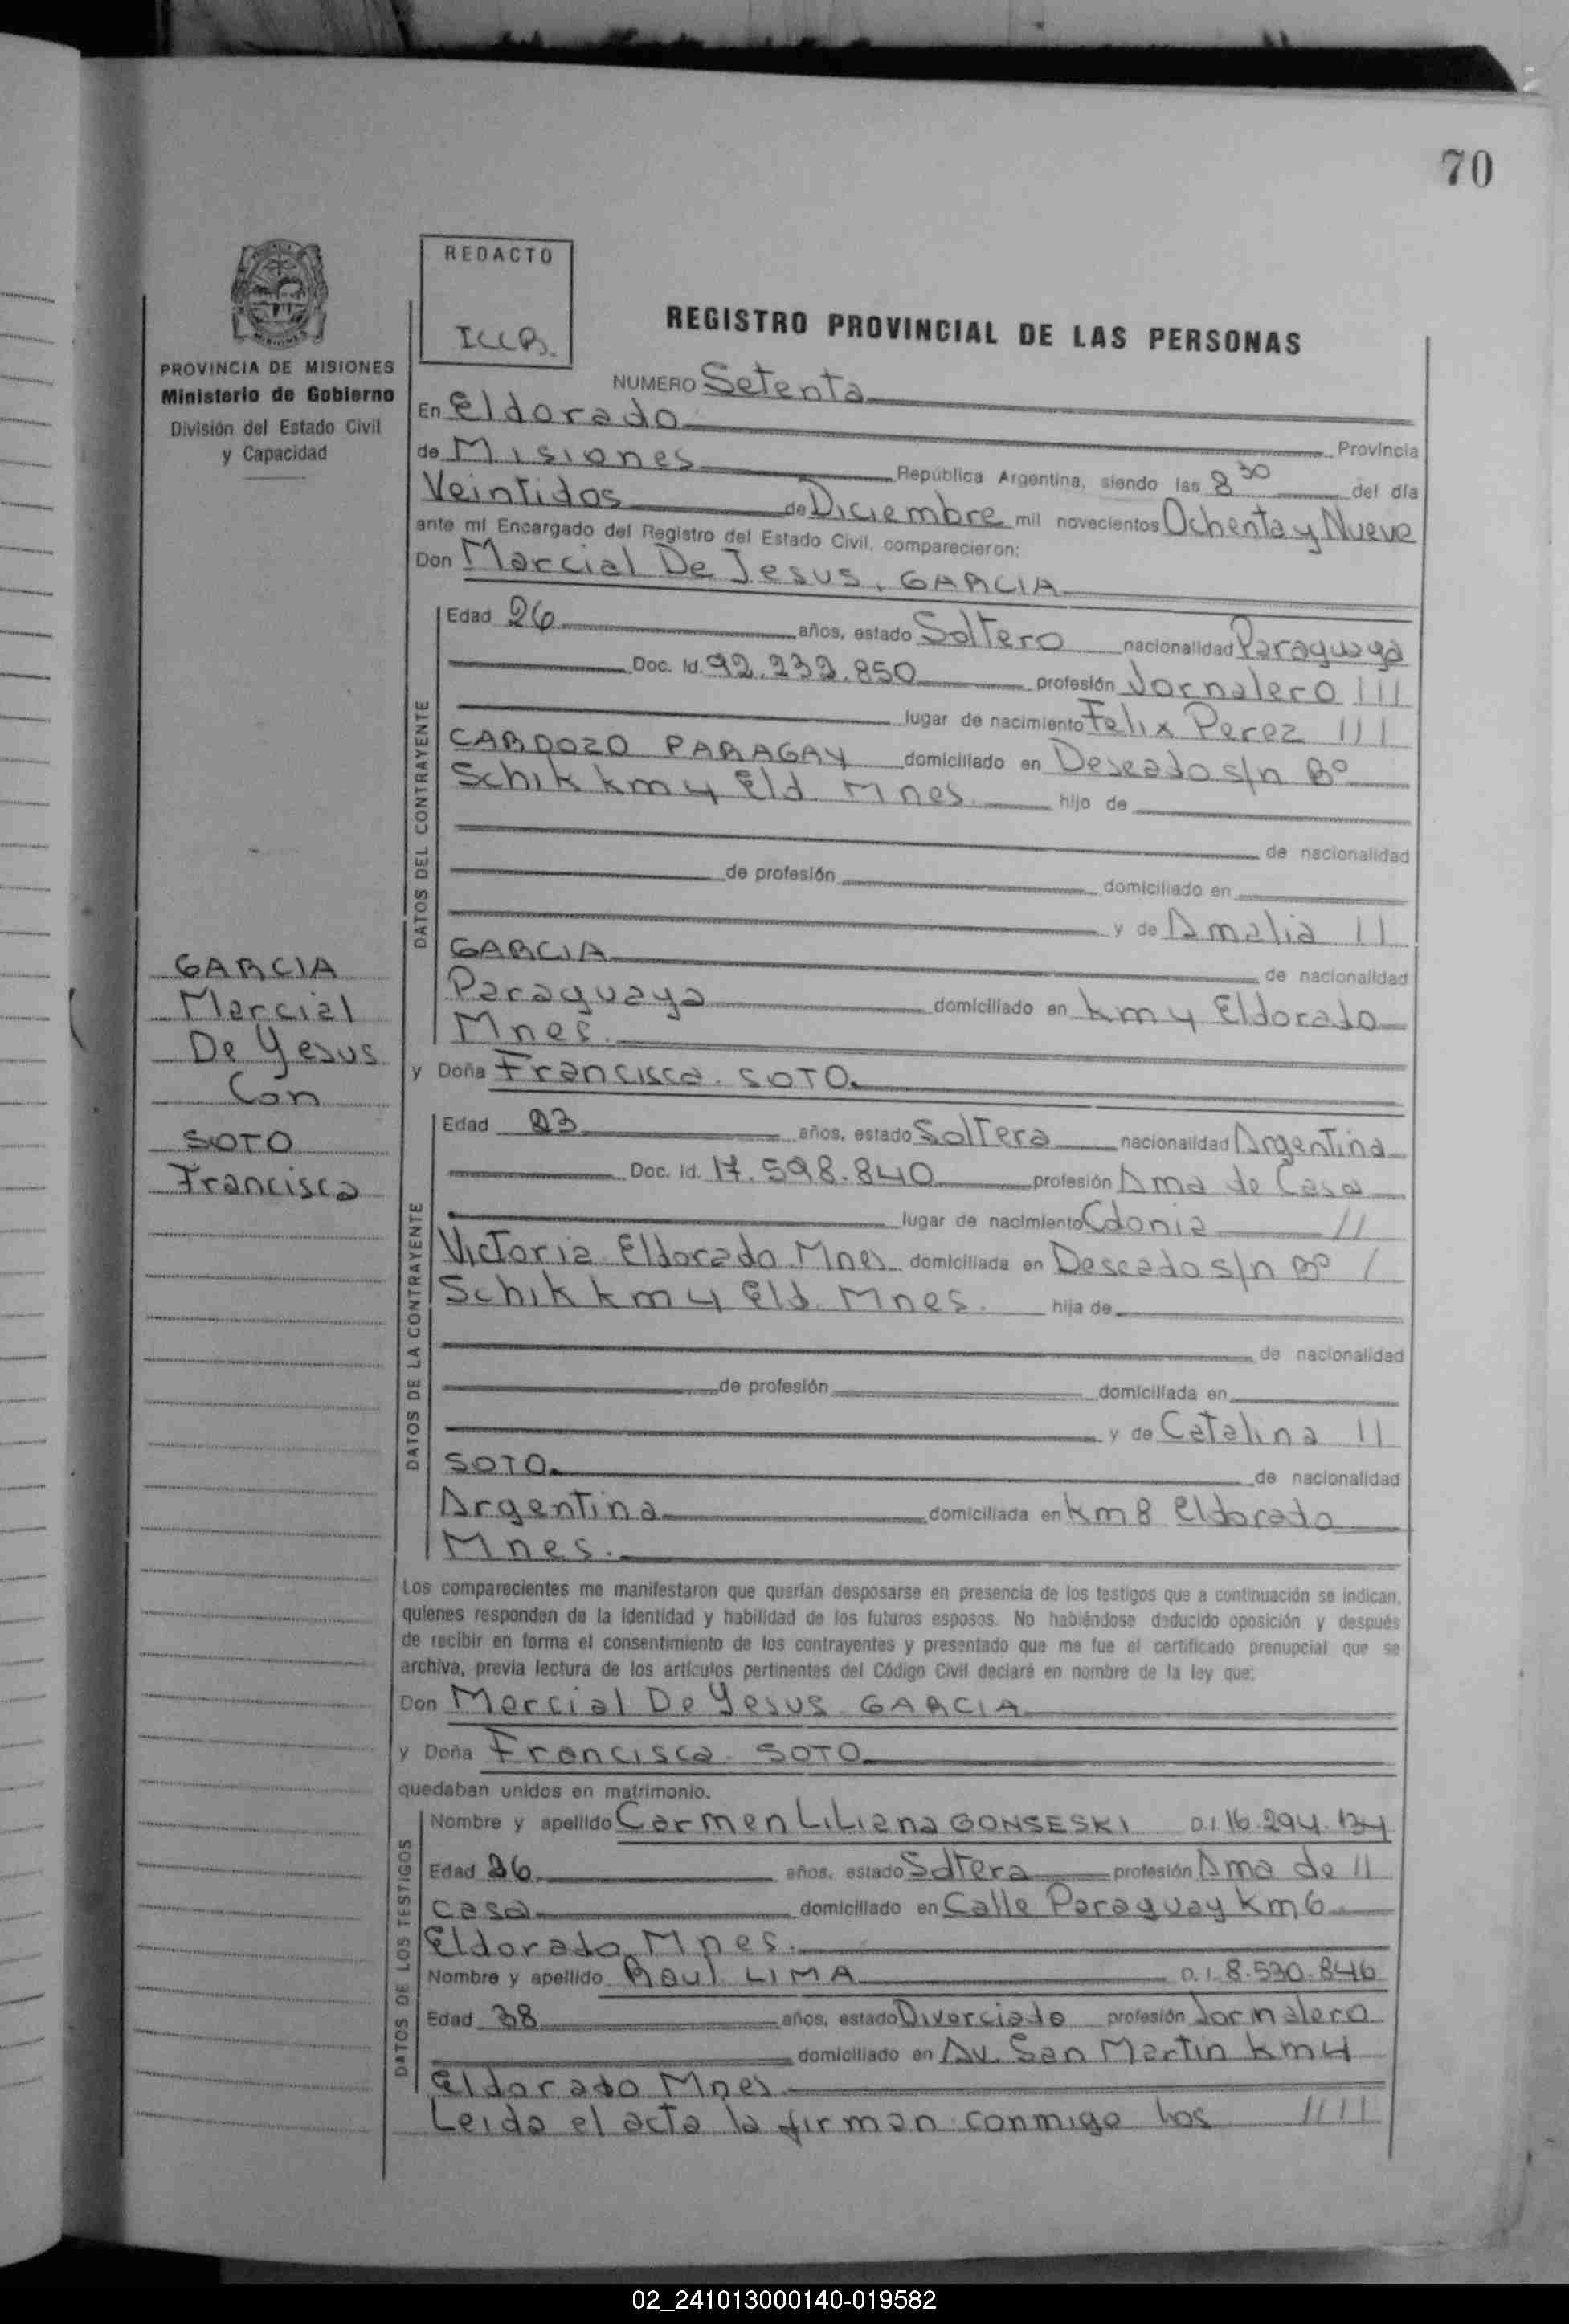 70
REDACTO
REGISTRO PROVINCIAL DE LAS PERSONAS
PROVINCIA DE MISIONES
Ministerio de Gobierno
División del Estado Civil
y Capacidad
NUMERO Setenta
En Eldorado Provincia
de Misiones República Argentina, siendo las 8 30 del día
Veintidos de Diciembre mil novecientos Ochenta y Nueve
ante mí Encargado del Registro del Estado Civil, comparecieron:
Don Marcial De Jesus, GARCIA
DATOS DEL CONTRAYENTE
Edad 26 años, estado Soltero nacionalidad Paraguaya
Doc. Id. 92.232.850 profesión Jornalero III
lugar de nacimiento Felix Perez III
CARDOZO PARAGAY domiciliado en Deseado s/n Bº
Schik km 4 Eld. Mnes. hijo de
de nacionalidad
de profesión domiciliado en
y de Amalia II
GARCIA de nacionalidad
Paraguaya domiciliado en km 4 Eldorado
Mnes.
GARCIA
Marcial
De Yesus
Con
SOTO
Francisca
y Doña Francisca. SOTO.
DATOS DE LA CONTRAYENTE
Edad 23 años, estado Soltera nacionalidad Argentina
Doc. Id. 17.598.840 profesión Ama de Casa
lugar de nacimiento Colonia //
Victoria Eldorado Mnes. domiciliada en Deseado s/n Bº /
Schik km 4 Eld. Mnes. hija de
de nacionalidad
de profesión domiciliada en
y de Catalina II
SOTO. de nacionalidad
Argentina domiciliada en km 8 Eldorado
Mnes.
Los comparecientes me manifestaron que querían desposarse en presencia de los testigos que a continuación se indican,
quienes responden de la identidad y habilidad de los futuros esposos. No habiéndose deducido oposición y después
de recibir en forma el consentimiento de los contrayentes y presentado que me fue el certificado prenupcial que se
archiva, previa lectura de los artículos pertinentes del Código Civil declaré en nombre de la ley que:
Don Marcial De Yesus GARCIA
y Doña Francisca. SOTO
quedaban unidos en matrimonio.
DATOS DE LOS TESTIGOS
Nombre y apellido Carmen Liliana GONSESKI D.I. 16.294.134
Edad 26 años, estado Soltera profesión Ama de II
casa domiciliado en Calle Paraguay Km 6
Eldorado, Mnes.
Nombre y apellido Raul LIMA D.I. 8.530.846
Edad 38 años, estado Divorciado profesión Jornalero
domiciliado en Av. San Martin km 4
Eldorado Mnes.
Leida el acta la firman conmigo los IIII
02_241013000140-019582